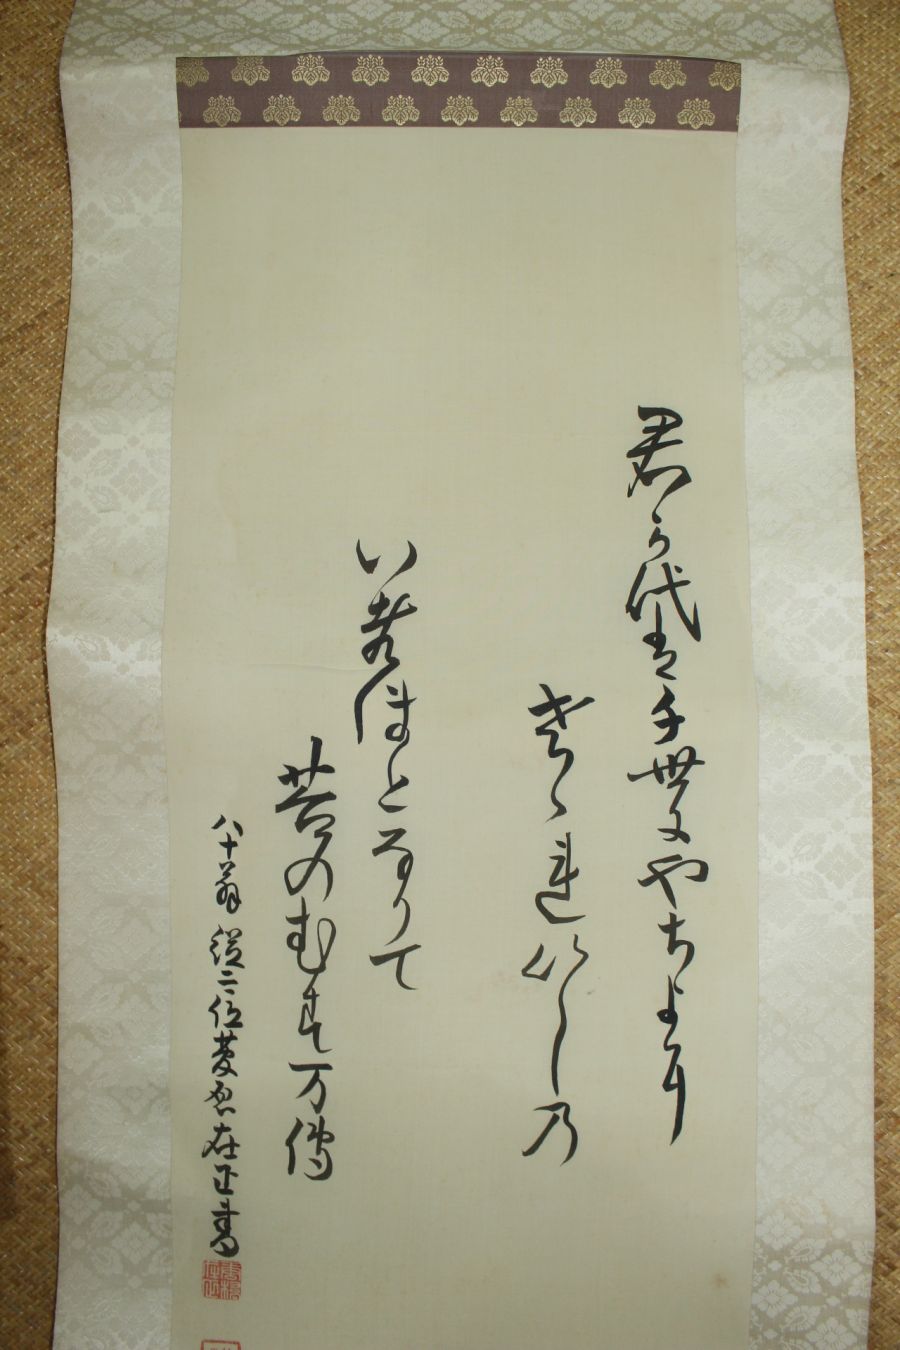 君か代は千世にやちよに
さゝれいしの
いはほとなりて
苔のむすまて
八十翁 従二位菅原在正書